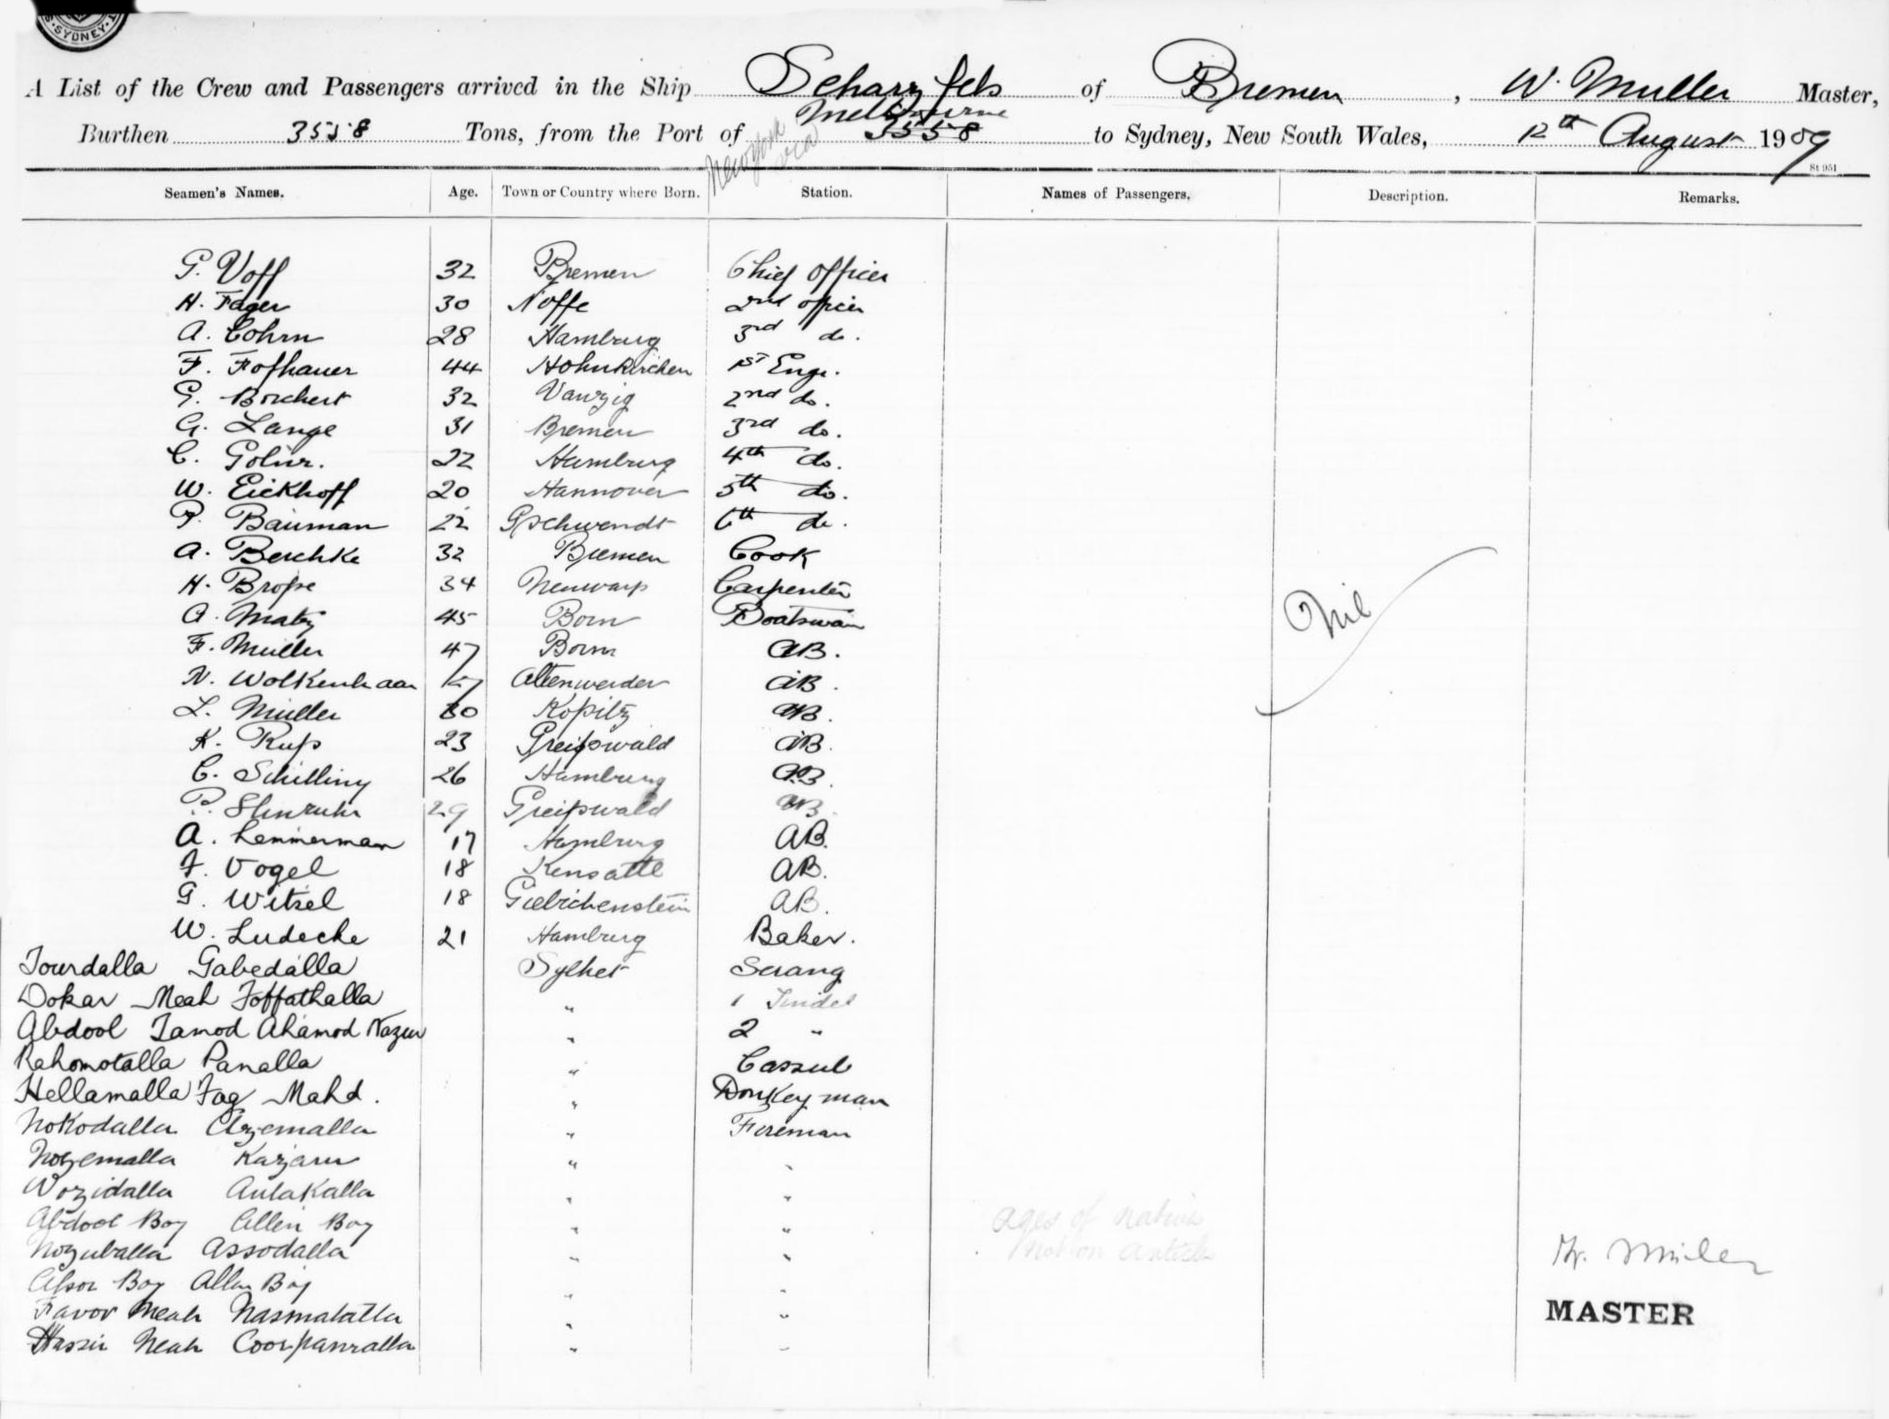 SYDNEY
A List of the Crew and Passengers arrived in the Ship Scharzfels of Bremen, W. Muller Master,
Burthen 3558 Tons, from the Port of Melbourne 3558 to Sydney, New South Wales, 12th August 1909
New York via
St 951
Seamen's Names. Age. Town or Country where Born. Station. Names of Passengers. Description. Remarks.
G. Voff 32 Bremen Chief officer
H. Fager 30 Noffe 2nd officer
A. Cohrn 28 Hamburg 3rd do.
F. Fofhauer 44 Hohnkirchen 1st Engr.
G. Borchert 32 Danzig 2nd do.
G. Lange 31 Bremen 3rd do.
C. 22 Hamburg 4th do.
W. Eickhoff 20 Hannover 5th do.
P. Bauman 22 Gschwendt 6th do.
A. Berchke 32 Bremen Cook
H. Brosse 34 Neuwarp Carpenter
A. Matz 45 Born Boatswain
F. Muller 47 Born AB.
N. Wolkenhaar Altenwerder AB.
L. Muller 30 Kopitz AB.
K. Russ 23 Greifswald AB.
C. Schilling 26 Hamburg AB.
P. 29 Greifswald AB.
A. Lemmerman 17 Hamburg AB.
F. Vogel 18 AB.
G. Witzel 18 Giebichenstein AB.
W. Ludecke 21 Hamburg Baker.
Tourdalla Gabedalla Sylhet Serang
Dokar Meah Foffathalla " 1 Tindel
Abdool Tamod Ahamod Nazur " 2 "
Rahomotalla Panalla " Cassub
Hellamalla Fag Mahd. " Donkeyman
Nokodalla Azemalla " Fireman
Nozemalla Kazaru " "
Wozidalla Aulakalla " "
Abdool Boy Allin Boy " "
Nozuballa Assodalla " "
Boy Alla Boy " "
Favor Meah Nasmalatlla " "
Hassir Neah Coorpanralla " "
Nil
Ages of natives
not on Article
W. Müller
MASTER